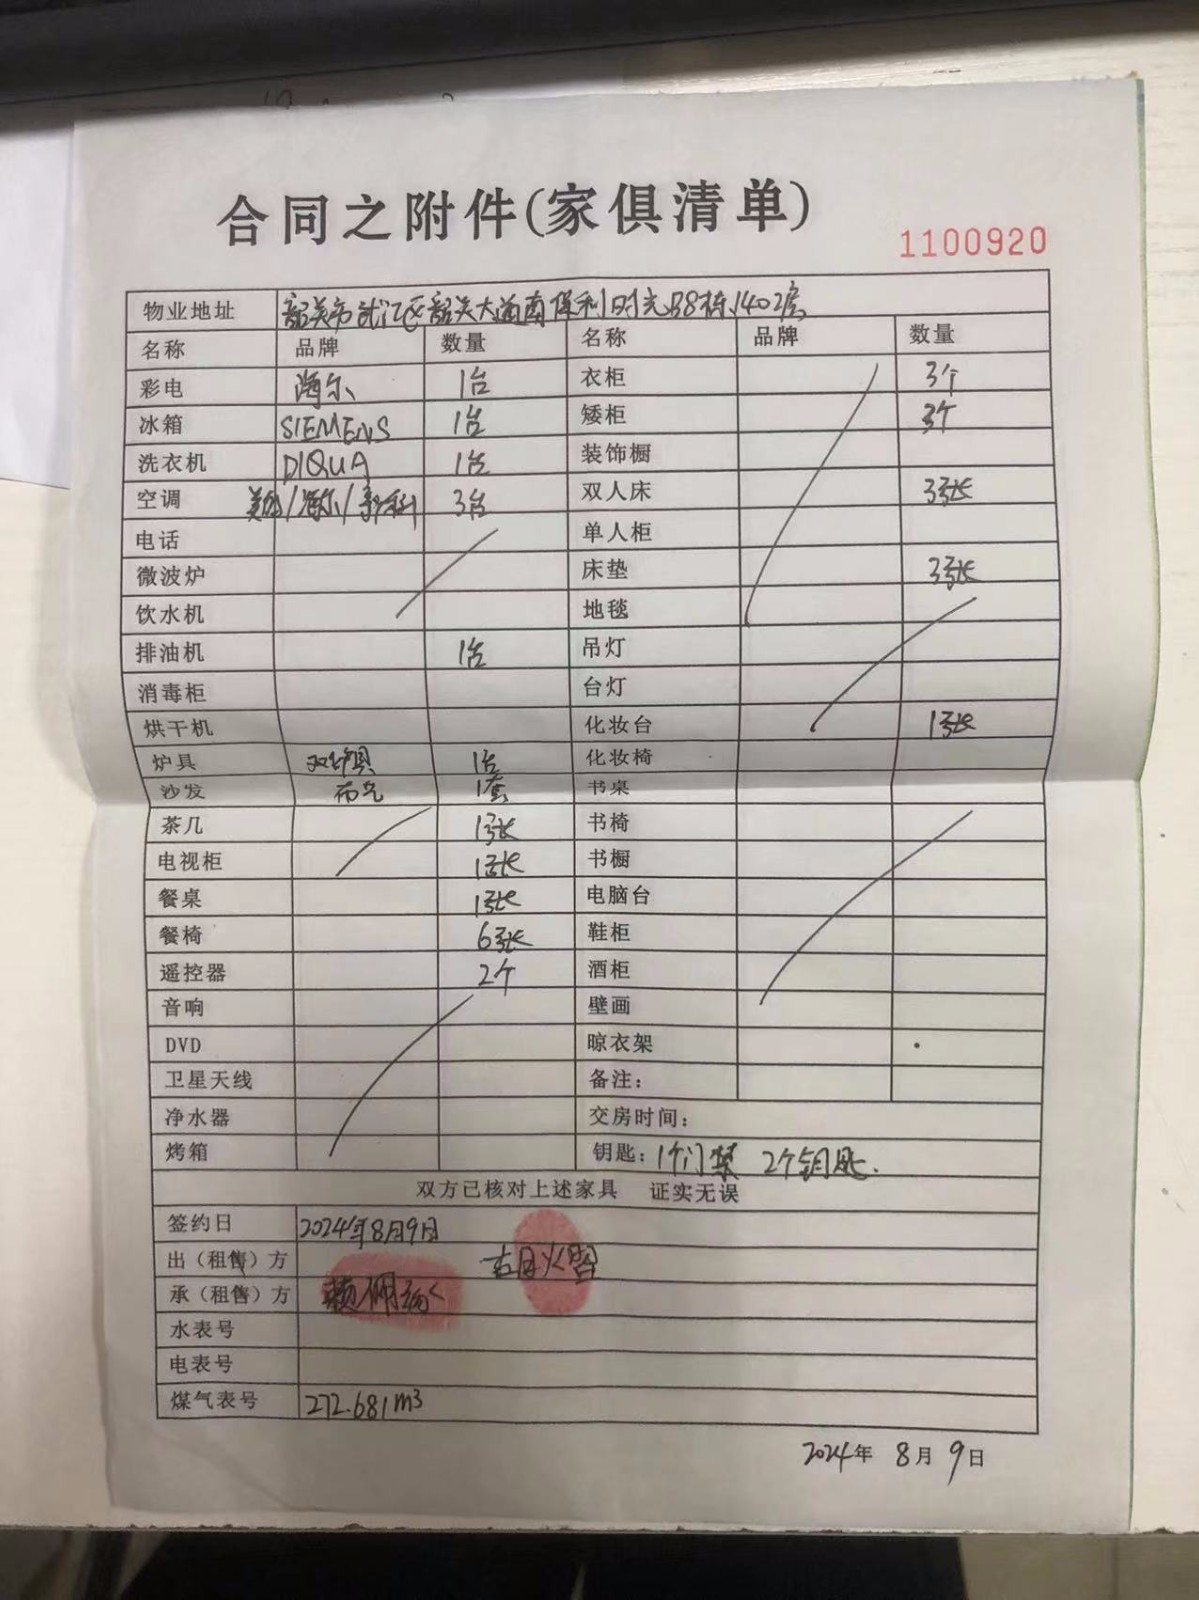 合同之附件(家俱清单)
1100920
物业地址 韶关市武江区韶关大道南保利时光38栋1402房
名称 品牌 数量 名称 品牌 数量
彩电 海尔 1台 衣柜 3个
冰箱 SIEMENS 1台 矮柜 3个
洗衣机 DIQUA 1台 装饰橱
空调 美的/海尔/新科 3台 双人床 3张
电话 单人柜
微波炉 床垫 3张
饮水机 地毯
排油机 1台 吊灯
消毒柜 台灯
烘干机 化妆台 1张
炉具 双炉具 1台 化妆椅
沙发 布艺 1套 书桌
茶几 1张 书椅
电视柜 1张 书橱
餐桌 1张 电脑台
餐椅 6张 鞋柜
遥控器 2个 酒柜
音响 壁画
DVD 晾衣架
卫星天线 备注：
净水器 交房时间：
烤箱 钥匙：1个门禁 2个钥匙.
双方已核对上述家具 证实无误
签约日 2024年8月9日
出（租售）方
承（租售）方 赖佩
水表号
电表号
煤气表号 272.681m3
2024年 8月 9日